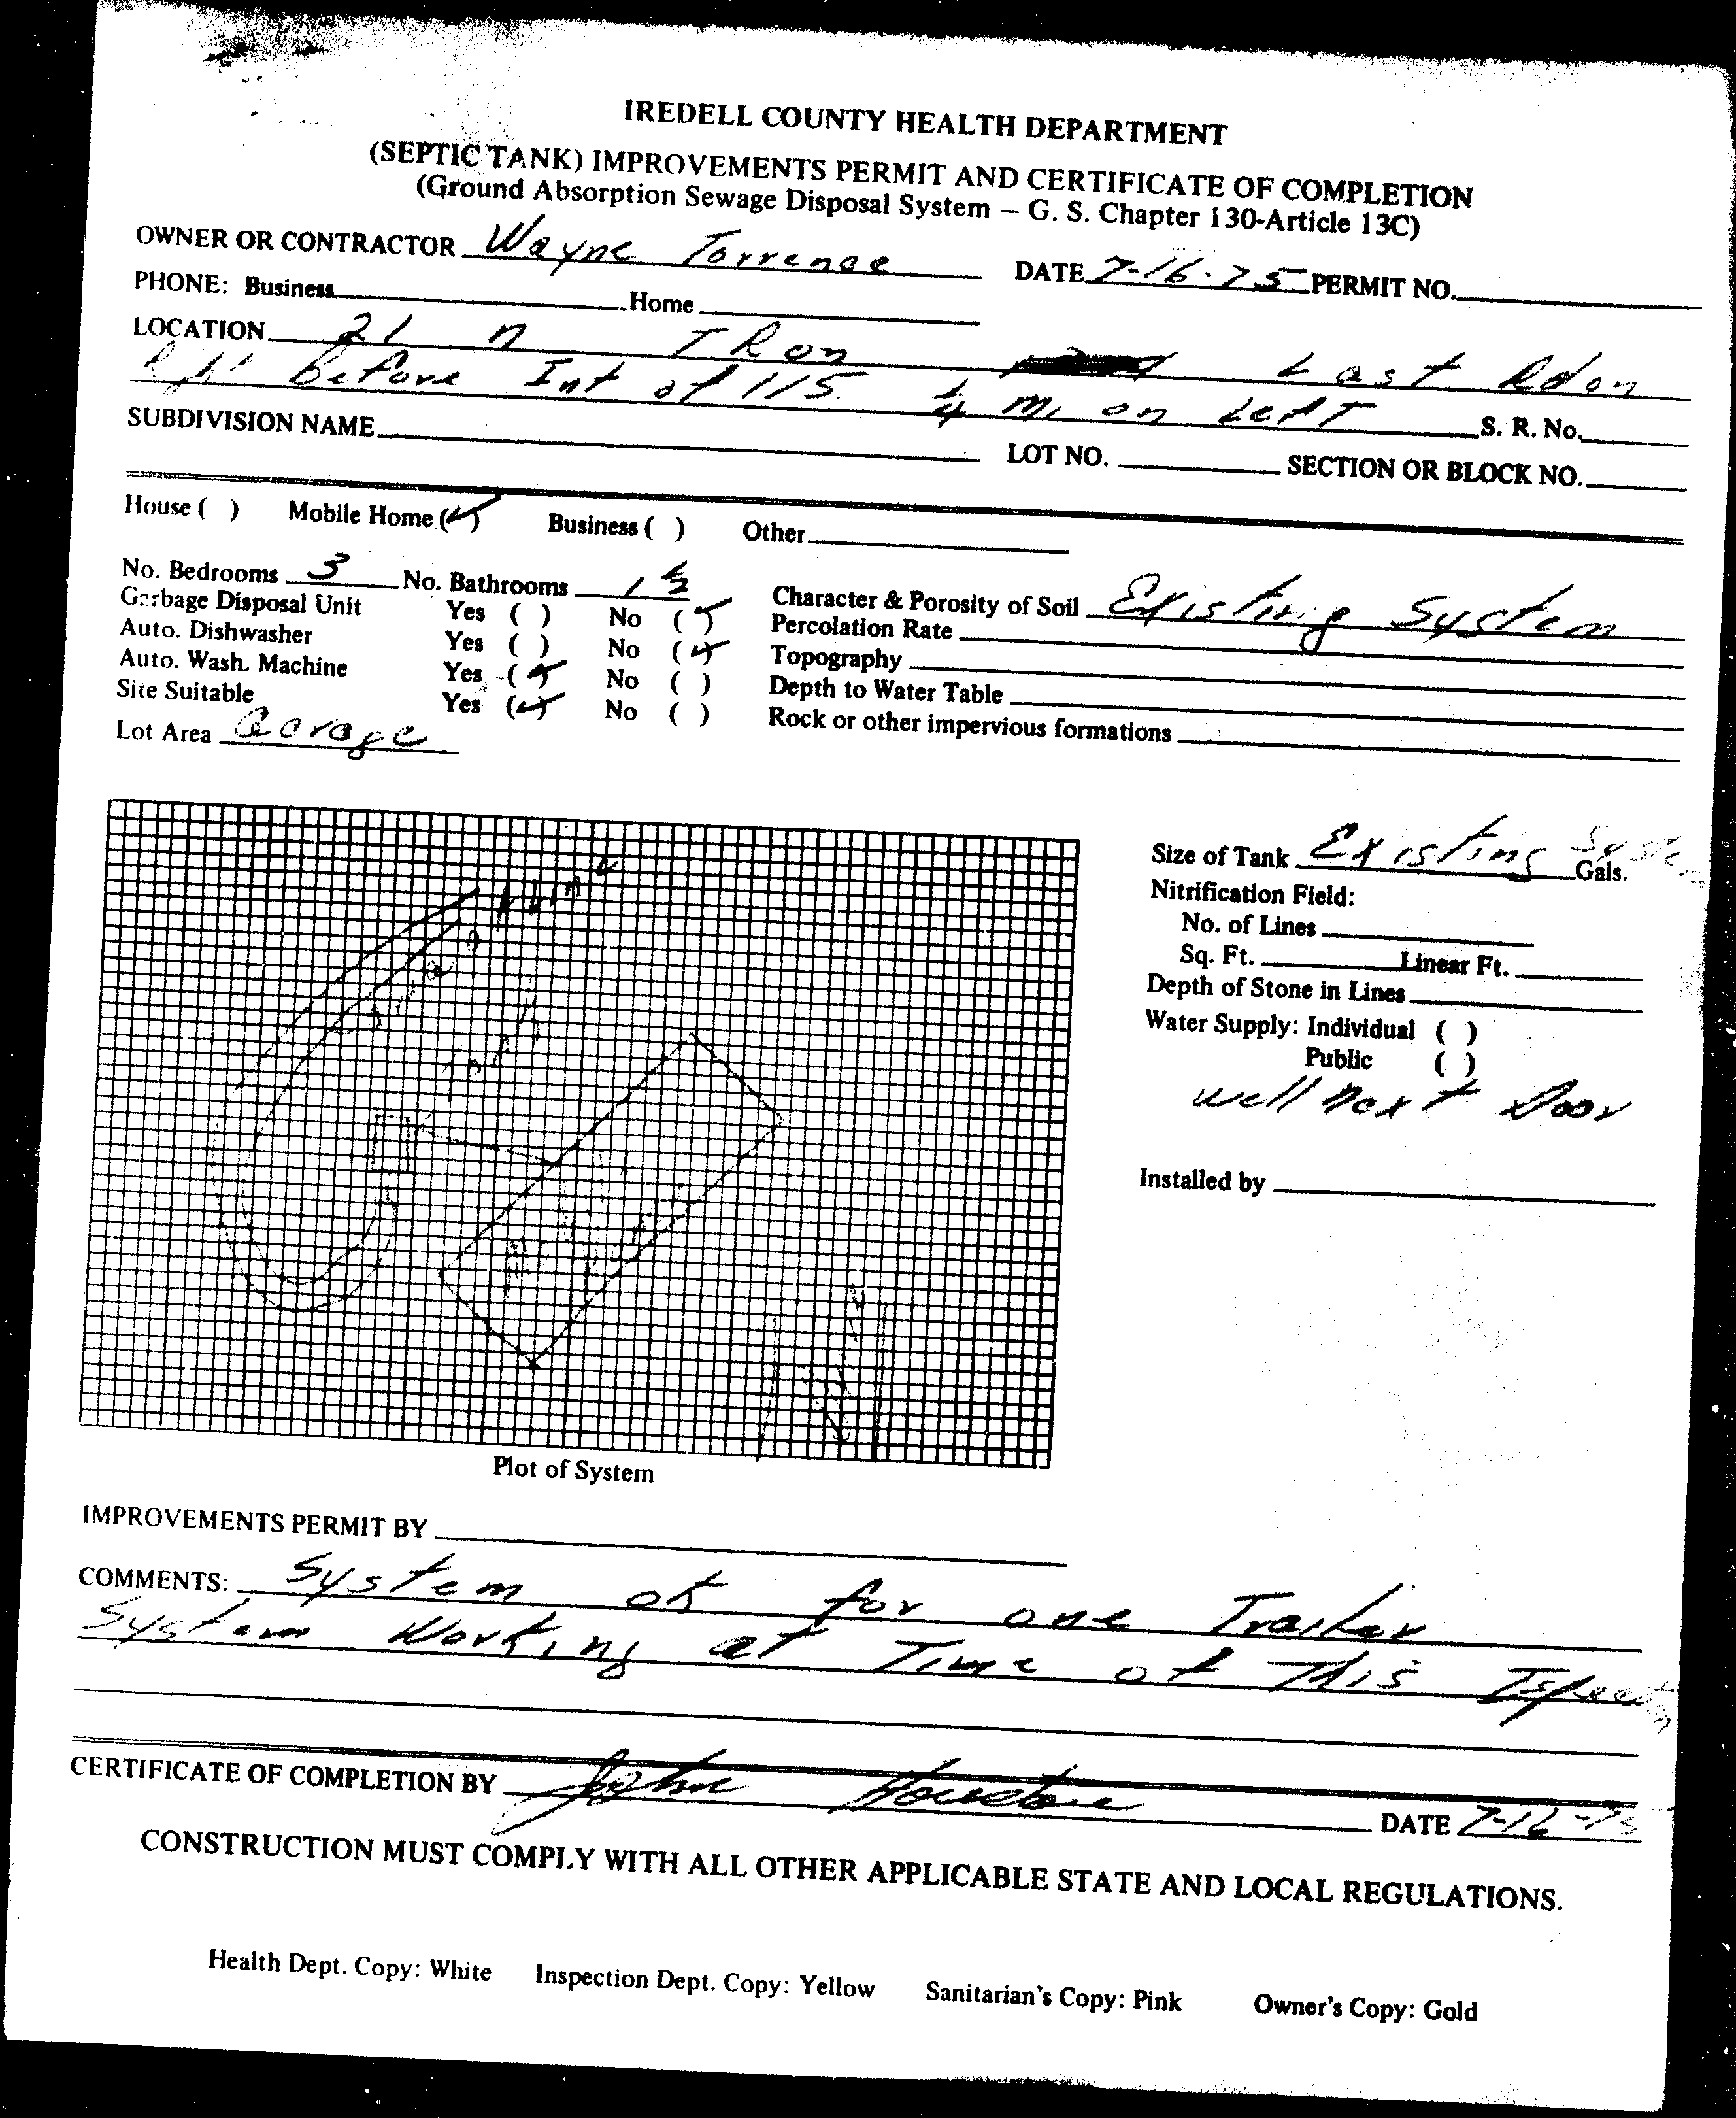 IREDELL COUNTY HEALTH DEPARTMENT
(SEPTIC TANK) IMPROVEMENTS PERMIT AND CERTIFICATE OF COMPLETION
(Ground Absorption Sewage Disposal System – G. S. Chapter 130-Article 13C)
OWNER OR CONTRACTOR Wayne Torrence DATE 7-16-75 PERMIT NO.
PHONE: Business Home
LOCATION 21 n TR on Last Rd on
before Int of 115. 1/4 Mi on Left S. R. No.
SUBDIVISION NAME LOT NO. SECTION OR BLOCK NO.
House ( ) Mobile Home (✓) Business ( ) Other
No. Bedrooms 3 No. Bathrooms 1 1/2 Character & Porosity of Soil Existing System
Garbage Disposal Unit Yes ( ) No (✓) Percolation Rate
Auto. Dishwasher Yes ( ) No (✓) Topography
Auto. Wash. Machine Yes (✓) No ( ) Depth to Water Table
Site Suitable Yes (✓) No ( ) Rock or other impervious formations
Lot Area Acrage
Size of Tank Existing Gals.
Nitrification Field:
No. of Lines
Sq. Ft. Linear Ft.
Depth of Stone in Lines
Water Supply: Individual ( )
Public ( )
well next Door
Installed by
Plot of System
IMPROVEMENTS PERMIT BY
COMMENTS: System ok for one Trailer
System Working at Time of This Ispection
CERTIFICATE OF COMPLETION BY John Houston DATE 7-16-75
CONSTRUCTION MUST COMPLY WITH ALL OTHER APPLICABLE STATE AND LOCAL REGULATIONS.
Health Dept. Copy: White Inspection Dept. Copy: Yellow Sanitarian's Copy: Pink Owner's Copy: Gold